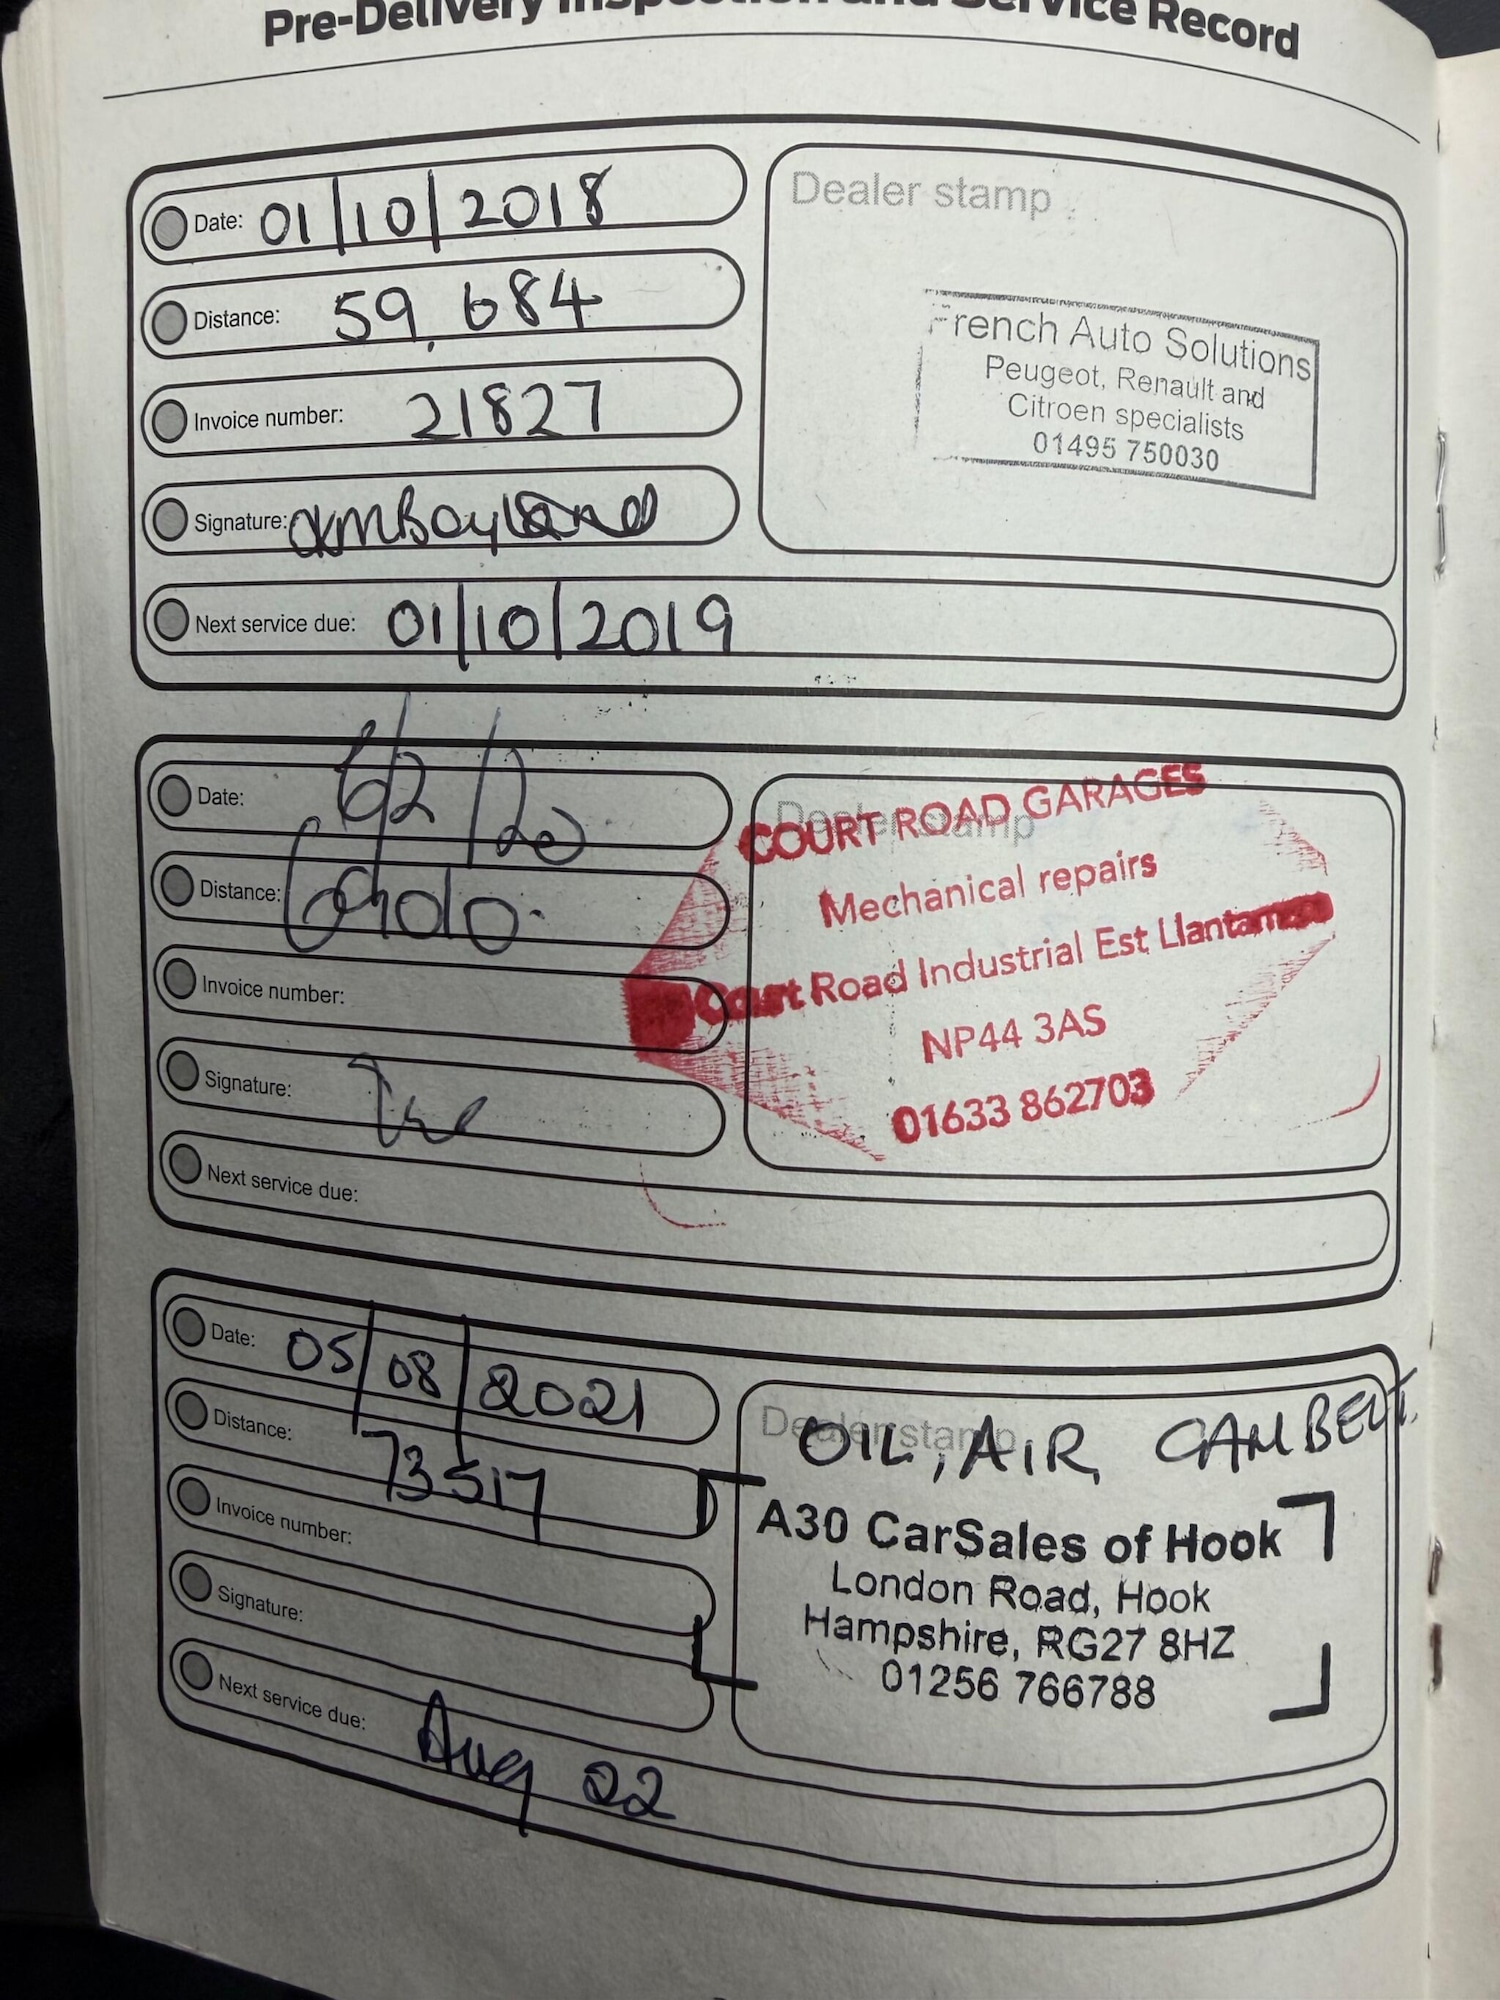 Pre-Delivery Inspection and Service Record
Date: 01/10/2018
Distance: 59,684
Invoice number: 21827
Signature:
Next service due: 01/10/2019
Dealer stamp
French Auto Solutions
Peugeot, Renault and
Citroen specialists
01495 750030
Date: 6/2/20
Distance:
Invoice number:
Signature:
Next service due:
Dealer stamp
COURT ROAD GARAGES
Mechanical repairs
Court Road Industrial Est Llantarnam
NP44 3AS
01633 862703
Date: 05/08/2021
Distance: 73517
Invoice number:
Signature:
Next service due: Aug 22
Dealer stamp
OIL, AIR, CAMBELT.
A30 CarSales of Hook
London Road, Hook
Hampshire, RG27 8HZ
01256 766788